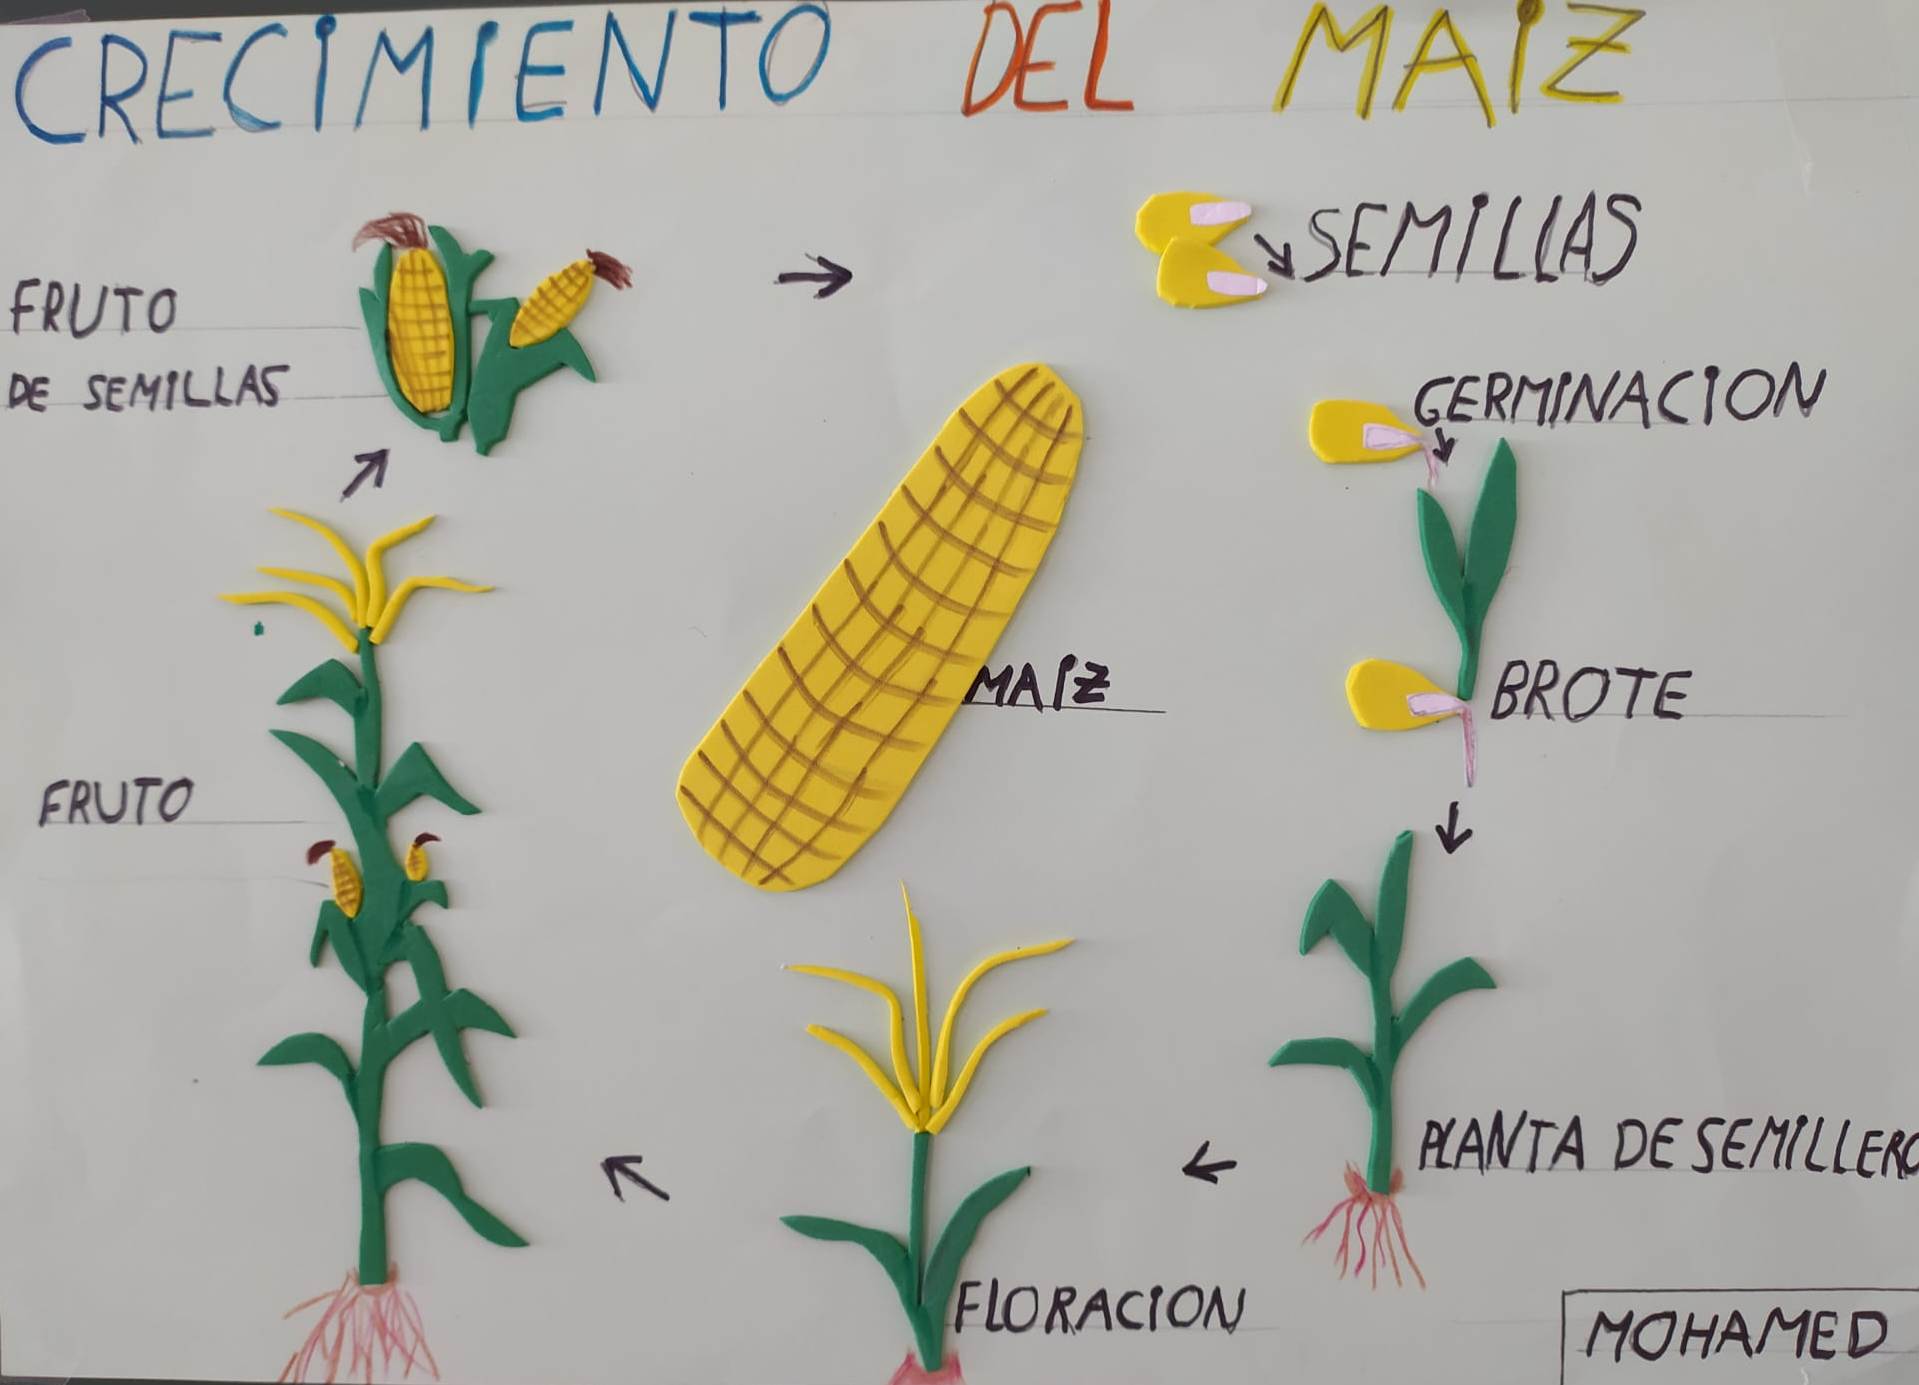 CRECIMIENTO DEL MAÍZ
SEMILLAS
FRUTO
DE SEMILLAS
GERMINACION
MAÍZ
BROTE
FRUTO
PLANTA DE SEMILLERO
FLORACION
MOHAMED